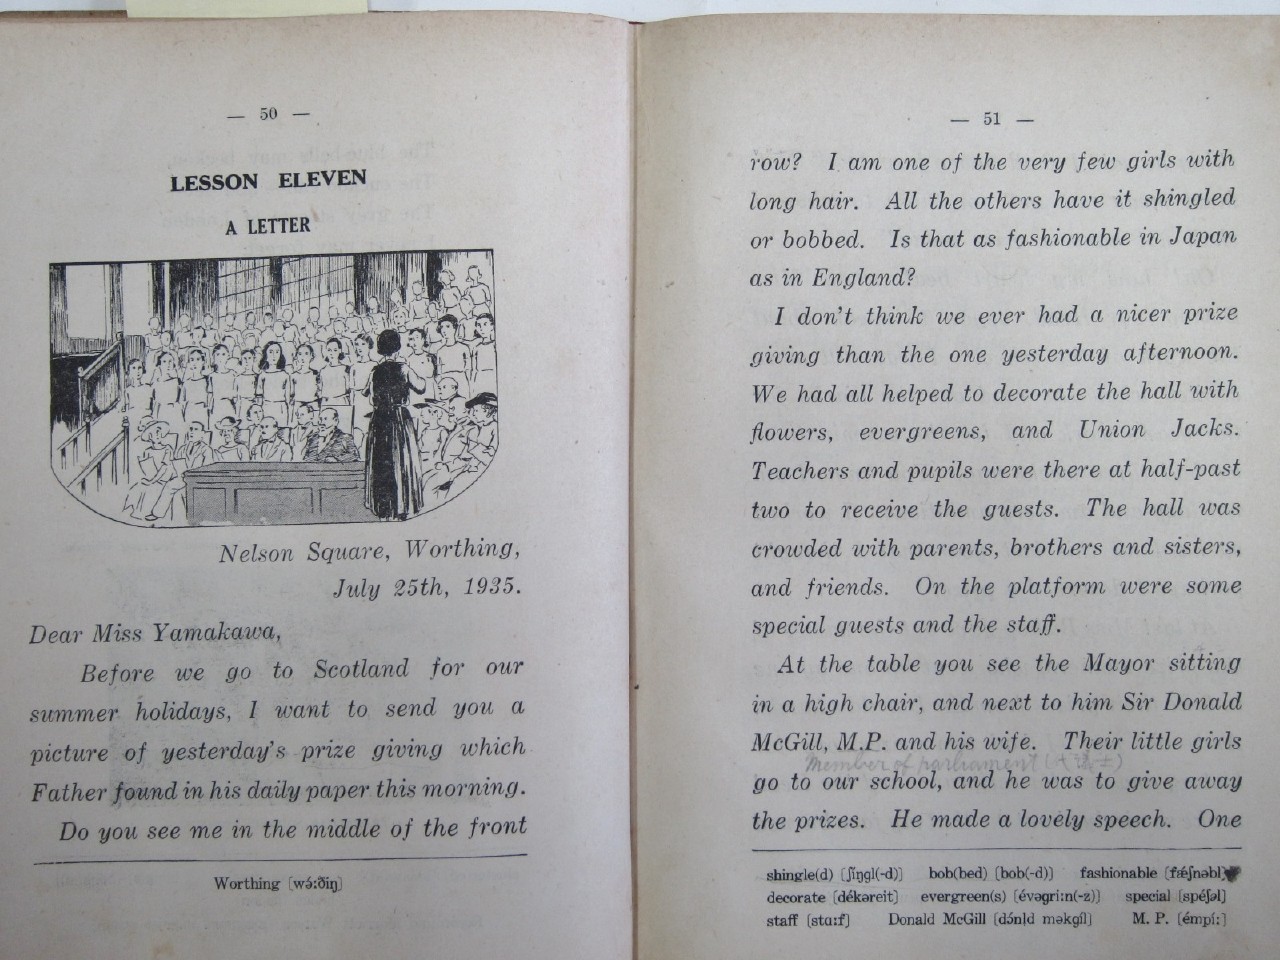 — 50 —
LESSON ELEVEN
A LETTER
Nelson Square, Worthing,
July 25th, 1935.
Dear Miss Yamakawa,
Before we go to Scotland for our
summer holidays, I want to send you a
picture of yesterday's prize giving which
Father found in his daily paper this morning.
Do you see me in the middle of the front
Worthing [wə́:ðiŋ]
— 51 —
row? I am one of the very few girls with
long hair. All the others have it shingled
or bobbed. Is that as fashionable in Japan
as in England?
I don't think we ever had a nicer prize
giving than the one yesterday afternoon.
We had all helped to decorate the hall with
flowers, evergreens, and Union Jacks.
Teachers and pupils were there at half-past
two to receive the guests. The hall was
crowded with parents, brothers and sisters,
and friends. On the platform were some
special guests and the staff.
At the table you see the Mayor sitting
in a high chair, and next to him Sir Donald
McGill, M.P. and his wife. Their little girls
Member of parliament
go to our school, and he was to give away
the prizes. He made a lovely speech. One
shingle(d) [ʃíŋgl(-d)] bob(bed) [bob(-d)] fashionable [fǽʃnəbl]
decorate [dékəreit] evergreen(s) [évəgri:n(-z)] special [spéʃəl]
staff [stɑ:f] Donald McGill [dónld məkgíl] M. P. [émpí:]